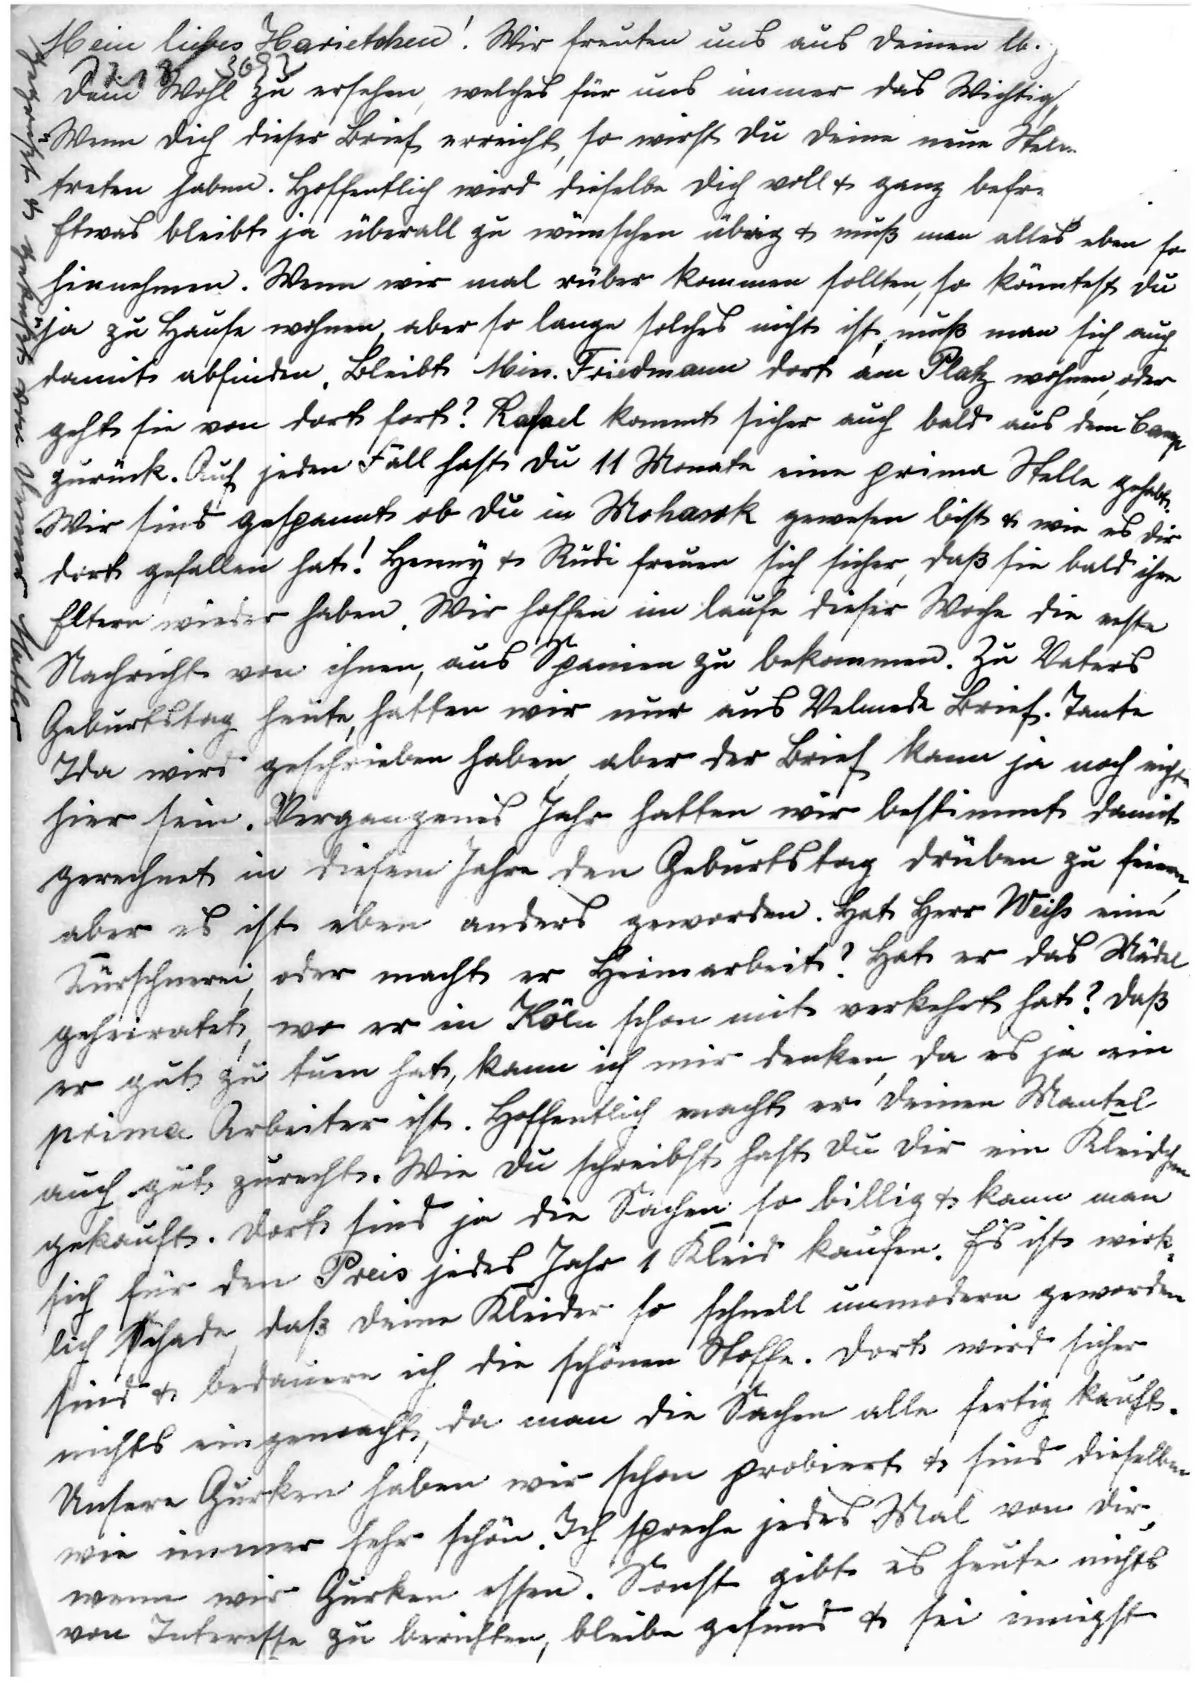 Mein liebes Harietchen! Wir freuten uns aus Deinen lb.
Dein Wohl zu ersehen, welches für uns immer das Wichtig
Wenn Dich dieser Brief erreicht, so wirst Du Deine neue Stelle
treten haben. Hoffentlich wird dieselbe Dich voll & ganz befr
Etwas bleibt ja überall zu wünschen übrig & muß man alles eben so
hinnehmen. Wenn wir mal rüber kommen sollten, so könntest Du
ja zu Hause wohnen, aber so lange solches nicht ist, muß man sich auch
damit abfinden. Bleibt Friedmann dort am Platz wohnen, oder
geht sie von dort fort? Rafael kommt sicher auch bald aus dem Camp
zurück. Auf jeden Fall hast Du 11 Monate eine prima Stelle gehabt.
Wir sind gespannt ob Du in Mohawk gewesen bist & wie es Dir
dort gefallen hat! Henny & Rudi freuen sich sicher, daß sie bald ihre
Eltern wieder haben. Wir hoffen im laufe dieser Woche die erste
Nachricht von ihnen, aus Spanien zu bekommen. Zu Vaters
Geburtstag heute, hatten wir nur aus Velmede Brief. Tante
Ida wird geschrieben haben, aber der Brief kann ja noch nicht
hier sein. Vergangenes Jahr hatten wir bestimmt damit
gerechnet in diesem Jahre den Geburtstag drüben zu feiern,
aber es ist eben anders geworden. Hat Herr Weihs eine
Kürschnerei, oder macht er Heimarbeit? Hat er das Mädel
geheiratet, wo er in Köln schon mit verkehrt hat? Daß
er gut zu tuen hat, kann ich mir denken, da es ja ein
prima Arbeiter ist. Hoffentlich macht er Deinen Mantel
auch gut zurecht. Wie Du schreibst hast Du Dir ein Kleidchen
gekauft. Dort sind ja die Sachen so billig & kann man
sich für den Preis jedes Jahr 1 Kleid kaufen. Es ist wirk-
lich schade, daß Deine Kleider so schnell unmodern geworden
sind & bedauere ich die schönen Stoffe. Dort wird sicher
nichts eingemacht, da man die Sachen alle fertig kauft.
Unsere Gurken haben wir schon probiert & sind dieselben
wie immer sehr schön. Ich spreche jedes Mal von Dir,
wenn wir Gurken essen. Sonst gibt es heute nichts
von Interesse zu berichten, bleibe gesund & sei innigst
gegrüßt & geküßt von Deiner Mutter